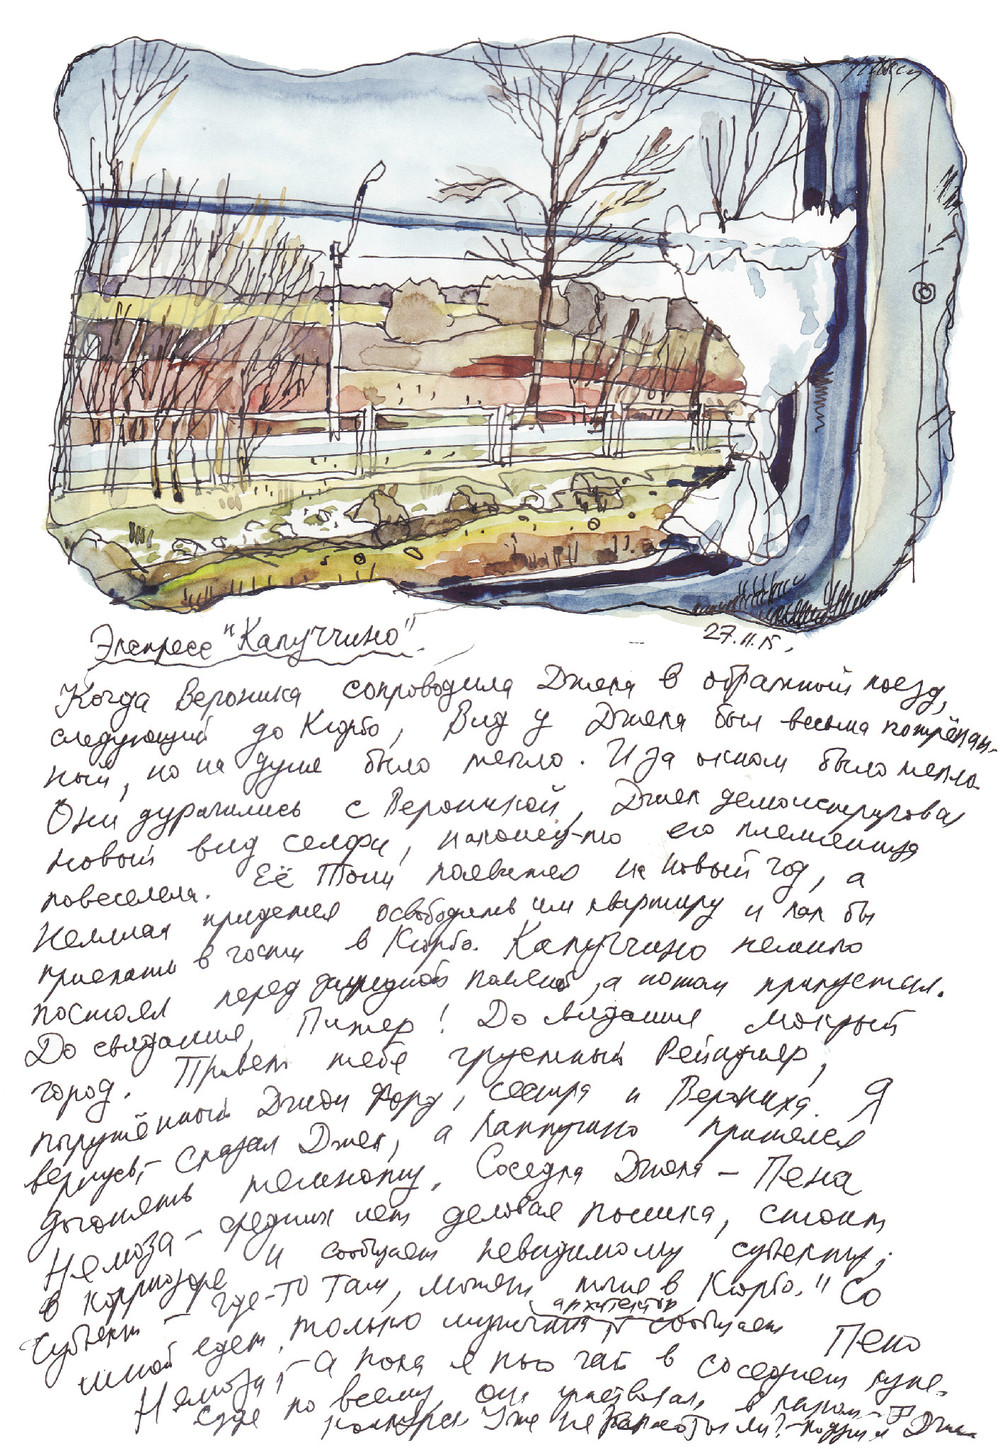 Экспресс "Капуччино"
27.11.15.
Когда Вероника сопроводила Джека в обратный поезд,
следующий до Кюрбо, Вид у Джека был весьма потрёпан-
ный, но на душе было тепло. И за окном было тепло.
Они дурачились с Вероникой, Джек демонстрировал
новый вид селфи, наконец-то его племянница
повеселела. Её Тони появится на новый год, а
придется освободить им квартиру и как бы
приехать в гости в Кюрбо. Капуччино немного
постоял перед запредной , а потом припустил.
До свидания, Питер! До свидания мокрый
город. Привет тебе грустный Рейнджер,
Джон Форд, сестра и Вероника. Я
вернусь, - сказал Джек, а Каппучино принялся
догонять темноту. Соседка Джека - Пена
Немоза - средних лет деловая пышка, стоит
в корридоре и сообщает невидимому субъекту;
Субъект - где-то там, может тоже в Кюрбо. "Со
мной едет только мужчина архитектор, сообщает Пено
Немоза, - А пока я пью чай в соседнем купе.
судя по всему, он участвовал в каком-то
конкурсе. Уже не ли? - подумал Джек